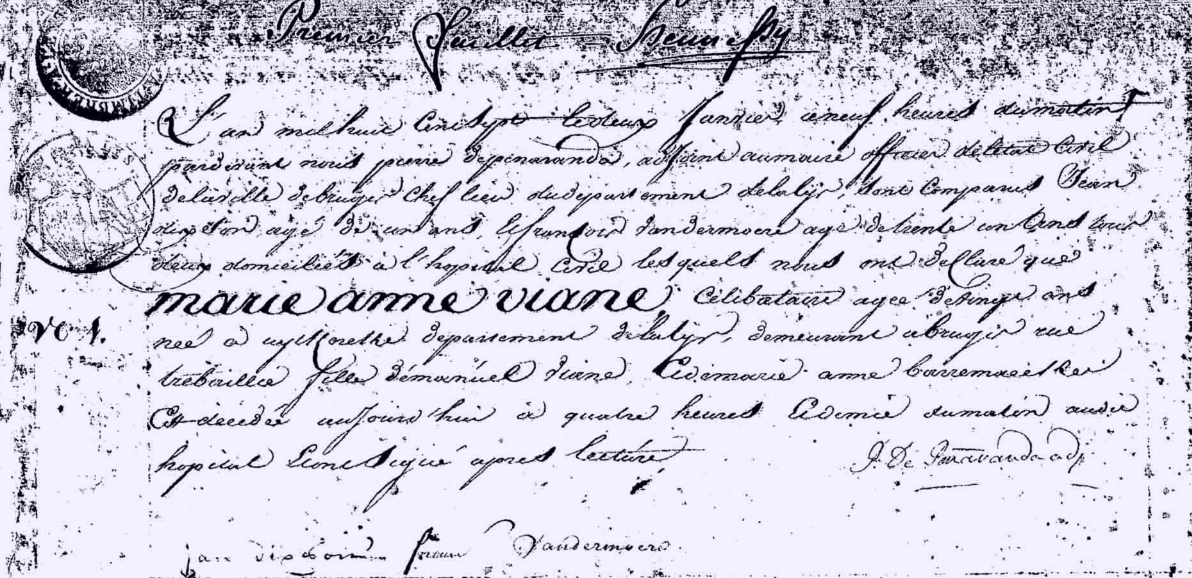 Premier feuillet
L'an mil huit cent sept le deux Janvier, a neuf heures du matin
pardevant nous pierre depenaranda, adjoint au maire officier de l'etat Civil
de la ville de bruges Chef lieu du departement de la lys, sont Comparus Jean
age de ans & françois Vandermoere age de trente un ans tous
deux domiciliés à l'hopital Civil lesquels nous ont declaré que
marie anne viane, Celibataire agee de vingt ans
N° 1.
neé à departement de la lys, demeurant a bruges rue
fille d'émanuel viane, & de marie anne
Est decédée aujourd'hui à quatre heures & demie du matin audit
hopital & ont signé apres lecture,
J. De Penaranda adj.
jan Vandermoere